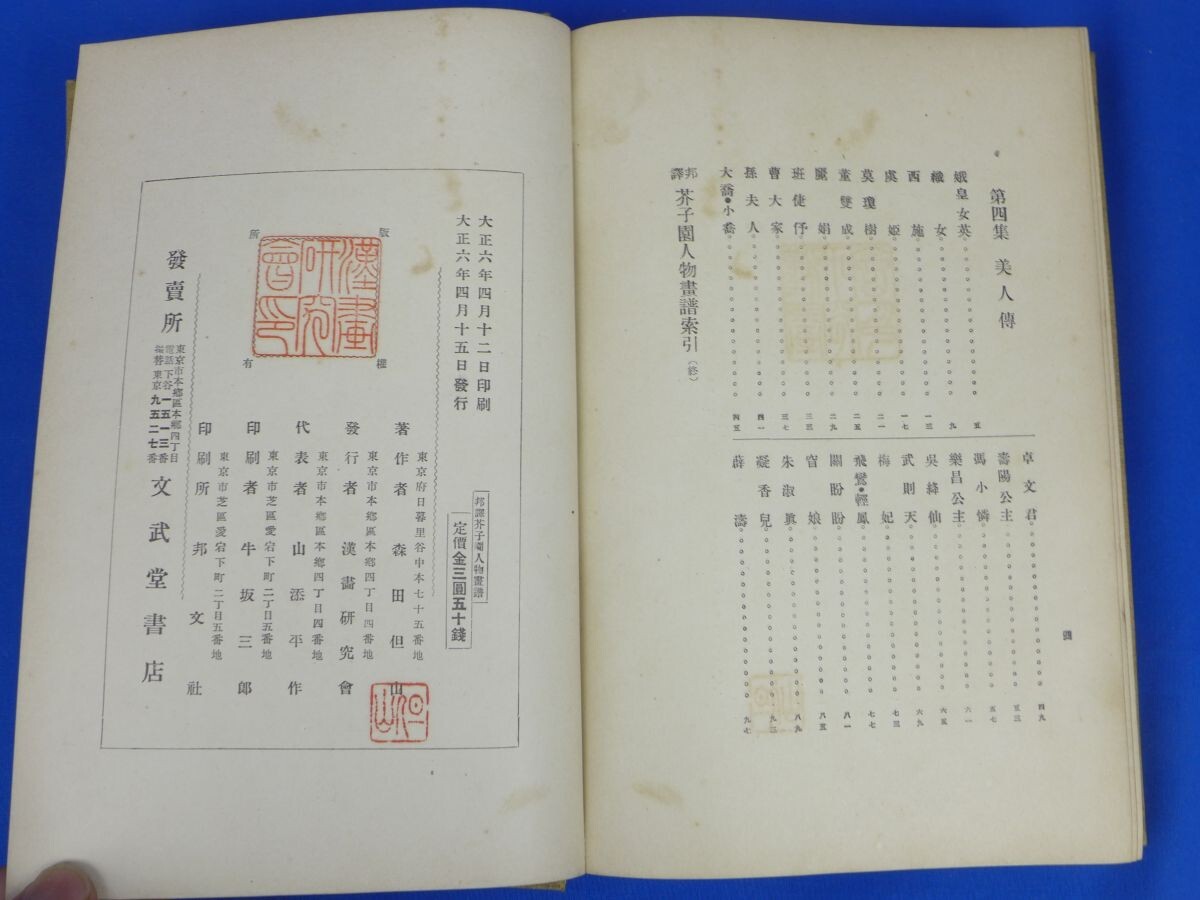 第四集 美人傳
娥皇女英 五
織女 九
西施 一三
虞姬 一七
莫瓊樹 二一
董雙成 二五
麗娟 二九
班倢伃 三三
曹大家 三七
孫夫人 四一
大喬・小喬 四五
卓文君 四九
壽陽公主 五三
馮小憐 五七
樂昌公主 六一
吳絳仙 六五
武則天 六九
梅妃 七三
飛鸞・輕鳳 七七
關盼盼 八一
窅娘 八五
朱淑眞 八九
凝香兒 九三
薛濤 九七
邦譯 芥子園人物畫譜索引(終)
四
邦譯芥子園人物畫譜
定價金三圓五十錢
大正六年四月十二日印刷
大正六年四月十五日發行
版權所有
漢畫研究會印
東京府日暮里谷中本七十五番地
著作者 森田但山
但山
東京市本鄕區本鄕四丁目四番地
發行者 漢畵研究會
東京市本鄕區本鄕四丁目四番地
代表者 山添平作
東京市芝區愛宕下町二丁目五番地
印刷者 牛坂三郎
東京市芝區愛宕下町二丁目五番地
印刷所 邦文社
發賣所
東京市本鄕區本鄕四丁目
電話下谷一五一三番
振替東京九五二七番
文武堂書店